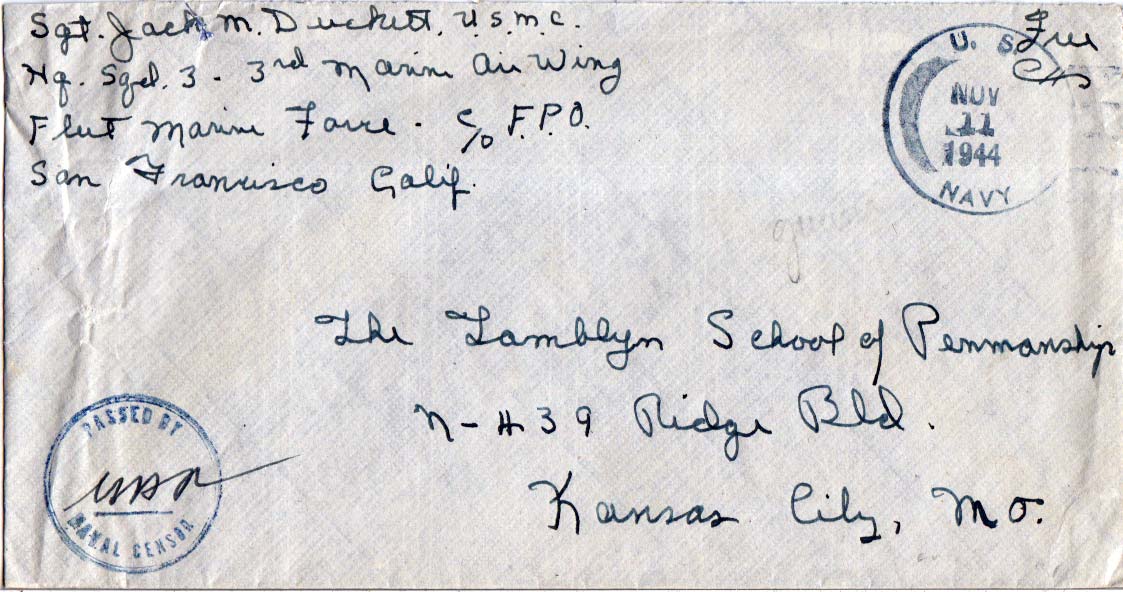 Sgt. Jack M. Duckett. U.S.M.C.
Hq. Sqd. 3 - 3rd Marine Air Wing
Fleet Marine Force - c/o F.P.O.
San Francisco Calif.
Free
U. S.
NOV
11
1944
NAVY
The Tamblyn School of Penmanship
N-439 Ridge Bld.
Kansas City, Mo.
PASSED BY
NAVAL CENSOR